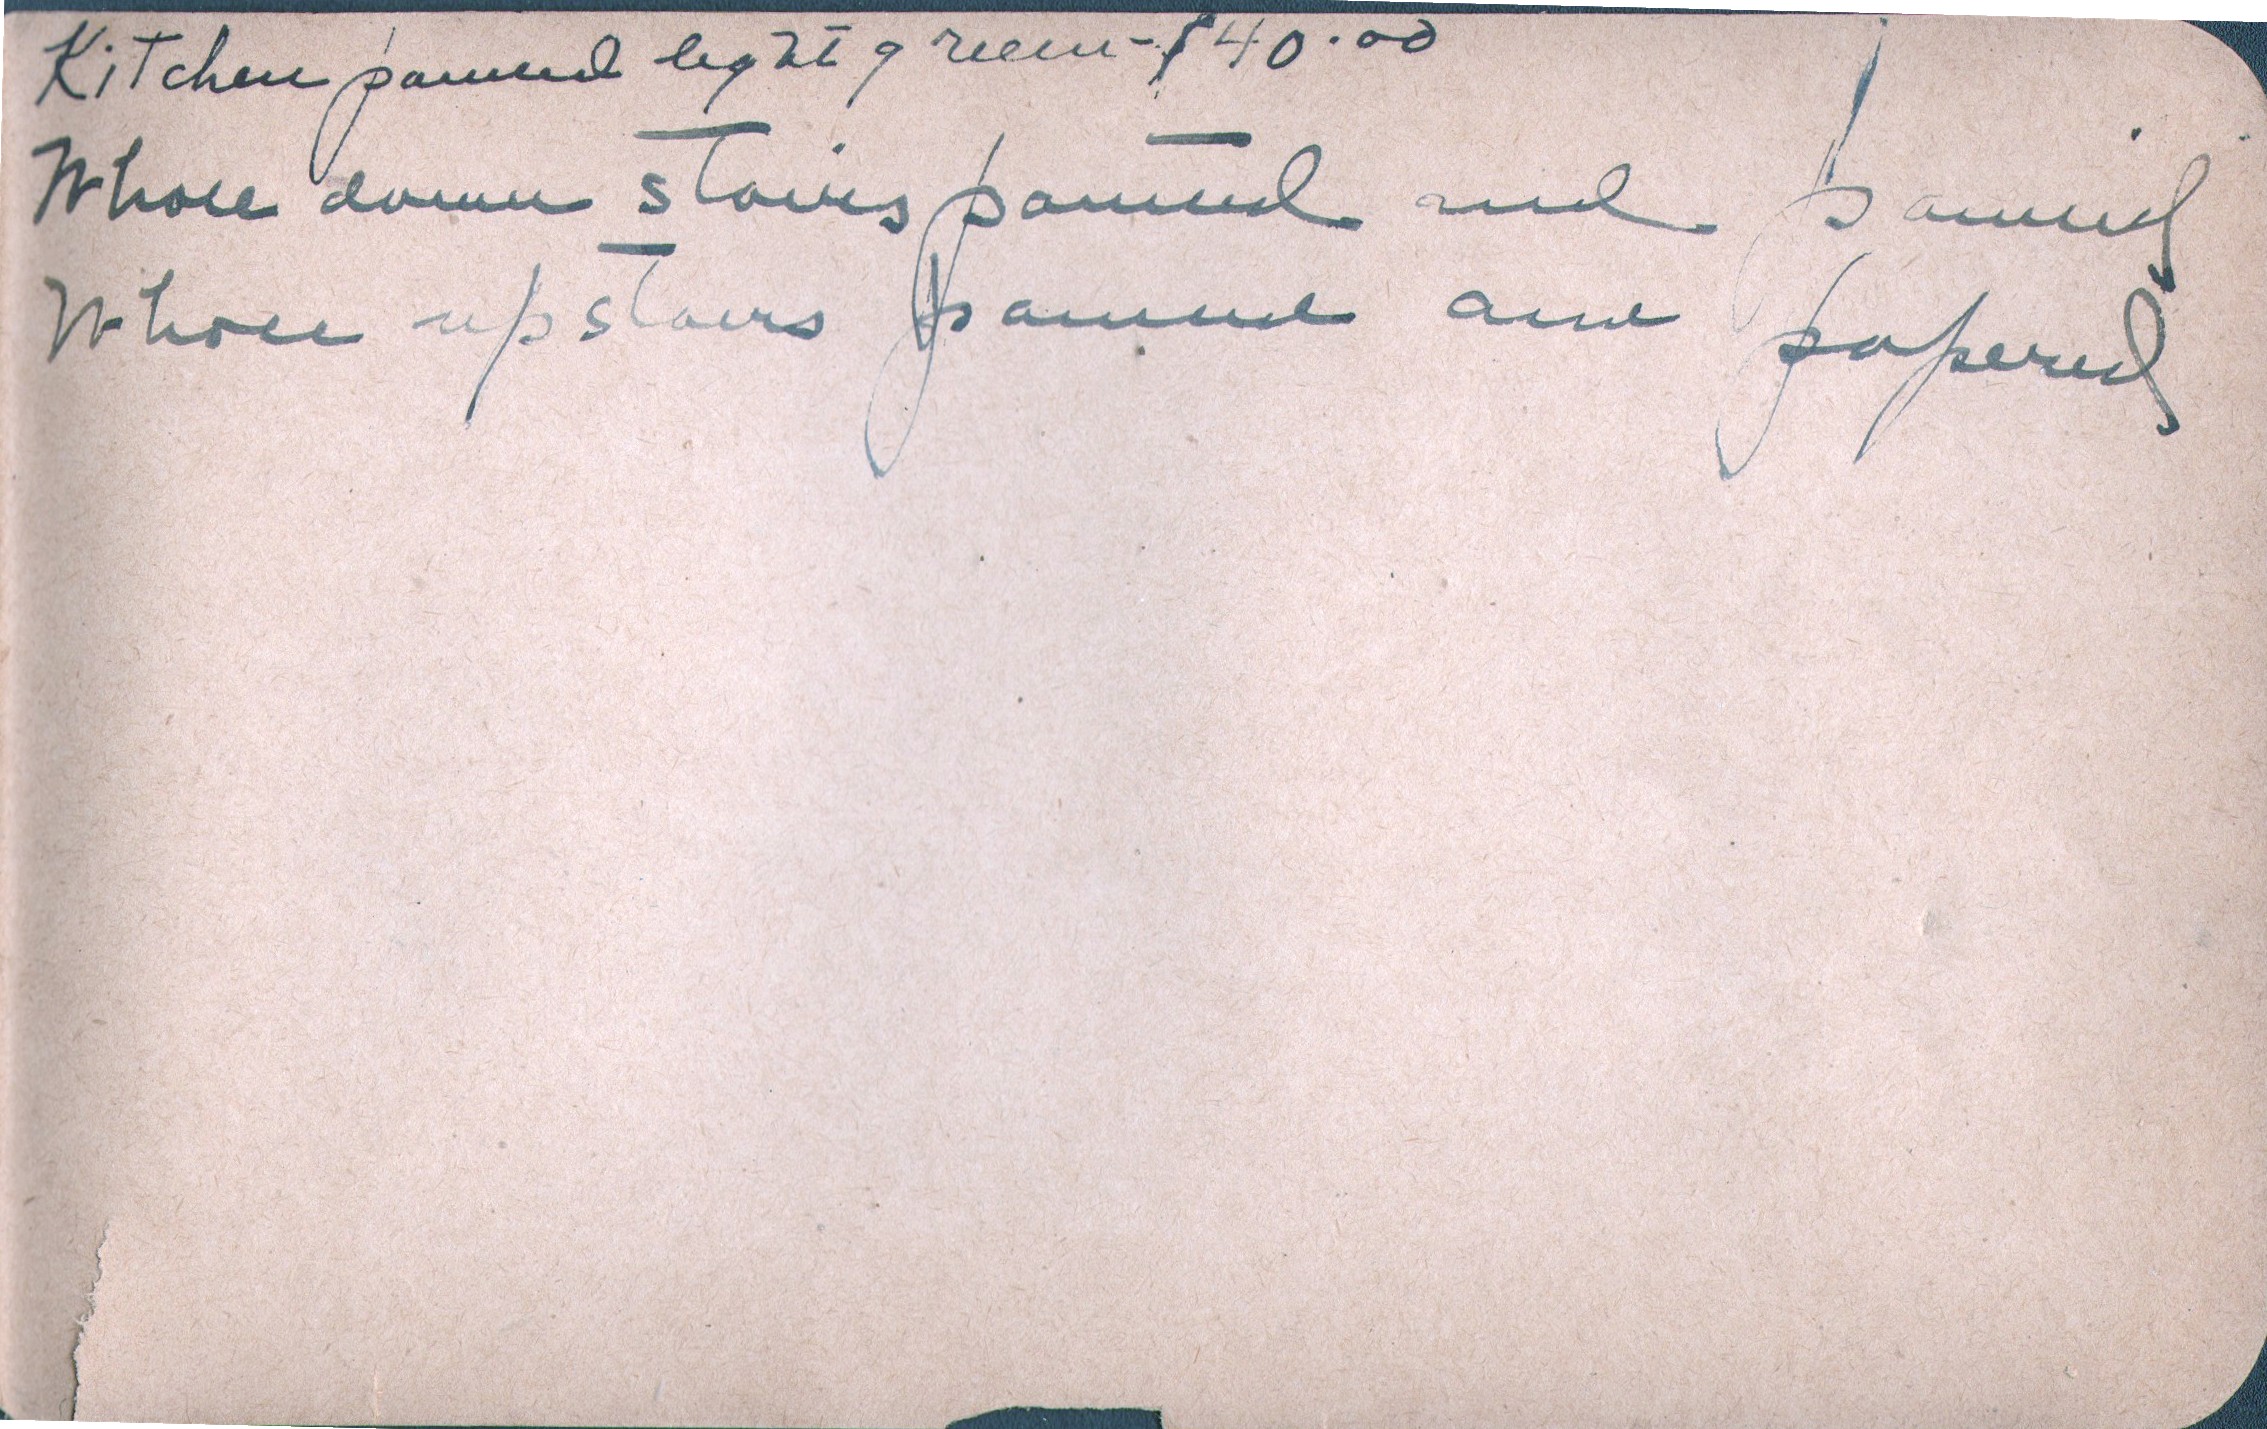 Kitchen painted light green - $40.00
Whole down stairs painted and painted
Whole upstairs painted and papered